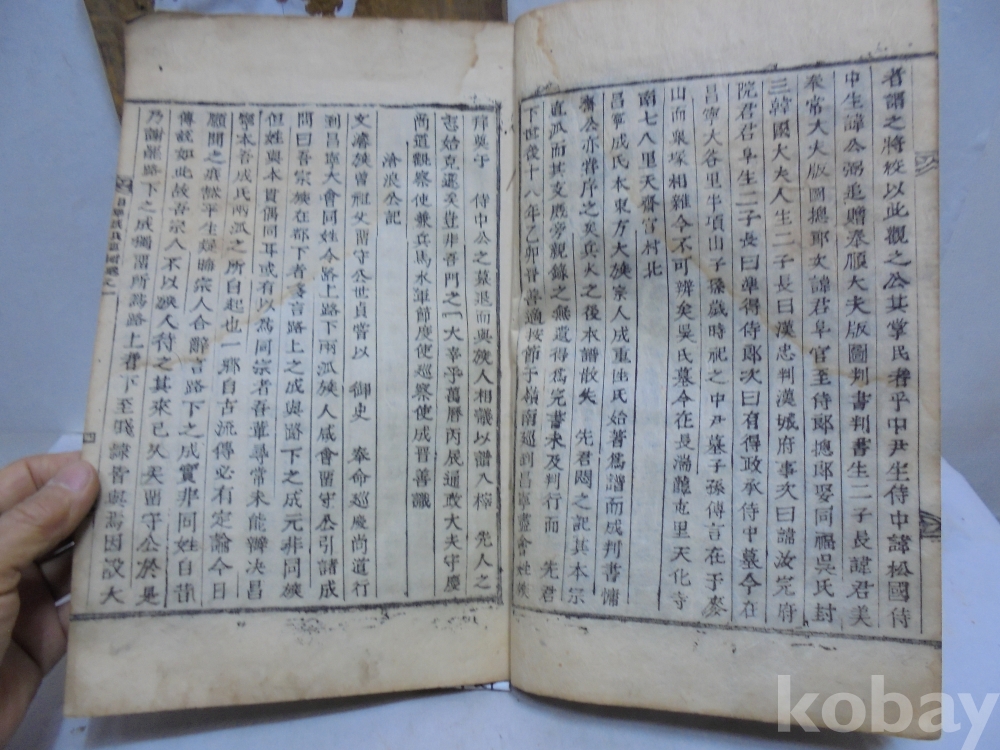 者謂之將校以此觀之公其掌民者乎中尹生侍中諱松國侍
中生諱公弼追贈奉順大夫版圖判書判書生二子長諱君美
奉常大夫版圖摠郎次諱君阜官至侍郎摠郎娶同福吳氏封
三韓國大夫人生二子長曰漢忠判漢城府事次曰諱汝完府
院君君阜生二子長曰準得侍郎次曰有得政承侍中墓今在
昌寧大谷里半項山子孫歲時祀之中尹墓子孫傳言在于麥
山而衆塚相雜今不可辨矣吳氏墓今在長湍 屯里天化寺
南七八里天齋宮村北
昌寧成氏本東方大族宗人成重 氏始著爲譜而成判書慵
齋公亦嘗序之矣兵火之後本譜散失 先君悶之記其本宗
直派而其支庶旁親錄之無遺得爲完書未及判行而 先君
下世後十八年乙卯晋善適按節于嶺南巡到昌寧 會 族
序奠于 侍中公之墓退而與族人相議以譜入梓 先人之
志始克遂矣豈非吾門之一大幸乎萬曆丙辰通政大夫守慶
尙道觀察使兼兵馬水軍節度使巡察使成晋善識
滄浪公記
文濬族曾祖父留守公世貞嘗以 御史 奉命巡慶尙道行
到昌寧大會同姓今路上路下兩派族人咸會留守公引諸成
問曰吾宗族在都下者多言路上之成與路下之成元非同族
但姓與本貫偶同耳或有以爲同宗者吾輩尋常未能辦決昌
寧本吾成氏兩派之所自起也一鄕自古流傳必有定論今日
願聞之 平生疑 宗人合辭言路下之成實非同姓自昔
傳說如此故吾宗人不以族人待之其來已久矣留守公於是
乃謝罷路下之成獨留所爲路上者下至賤隷皆與焉因設大
昌寧成氏 譜 之一
四
kobay